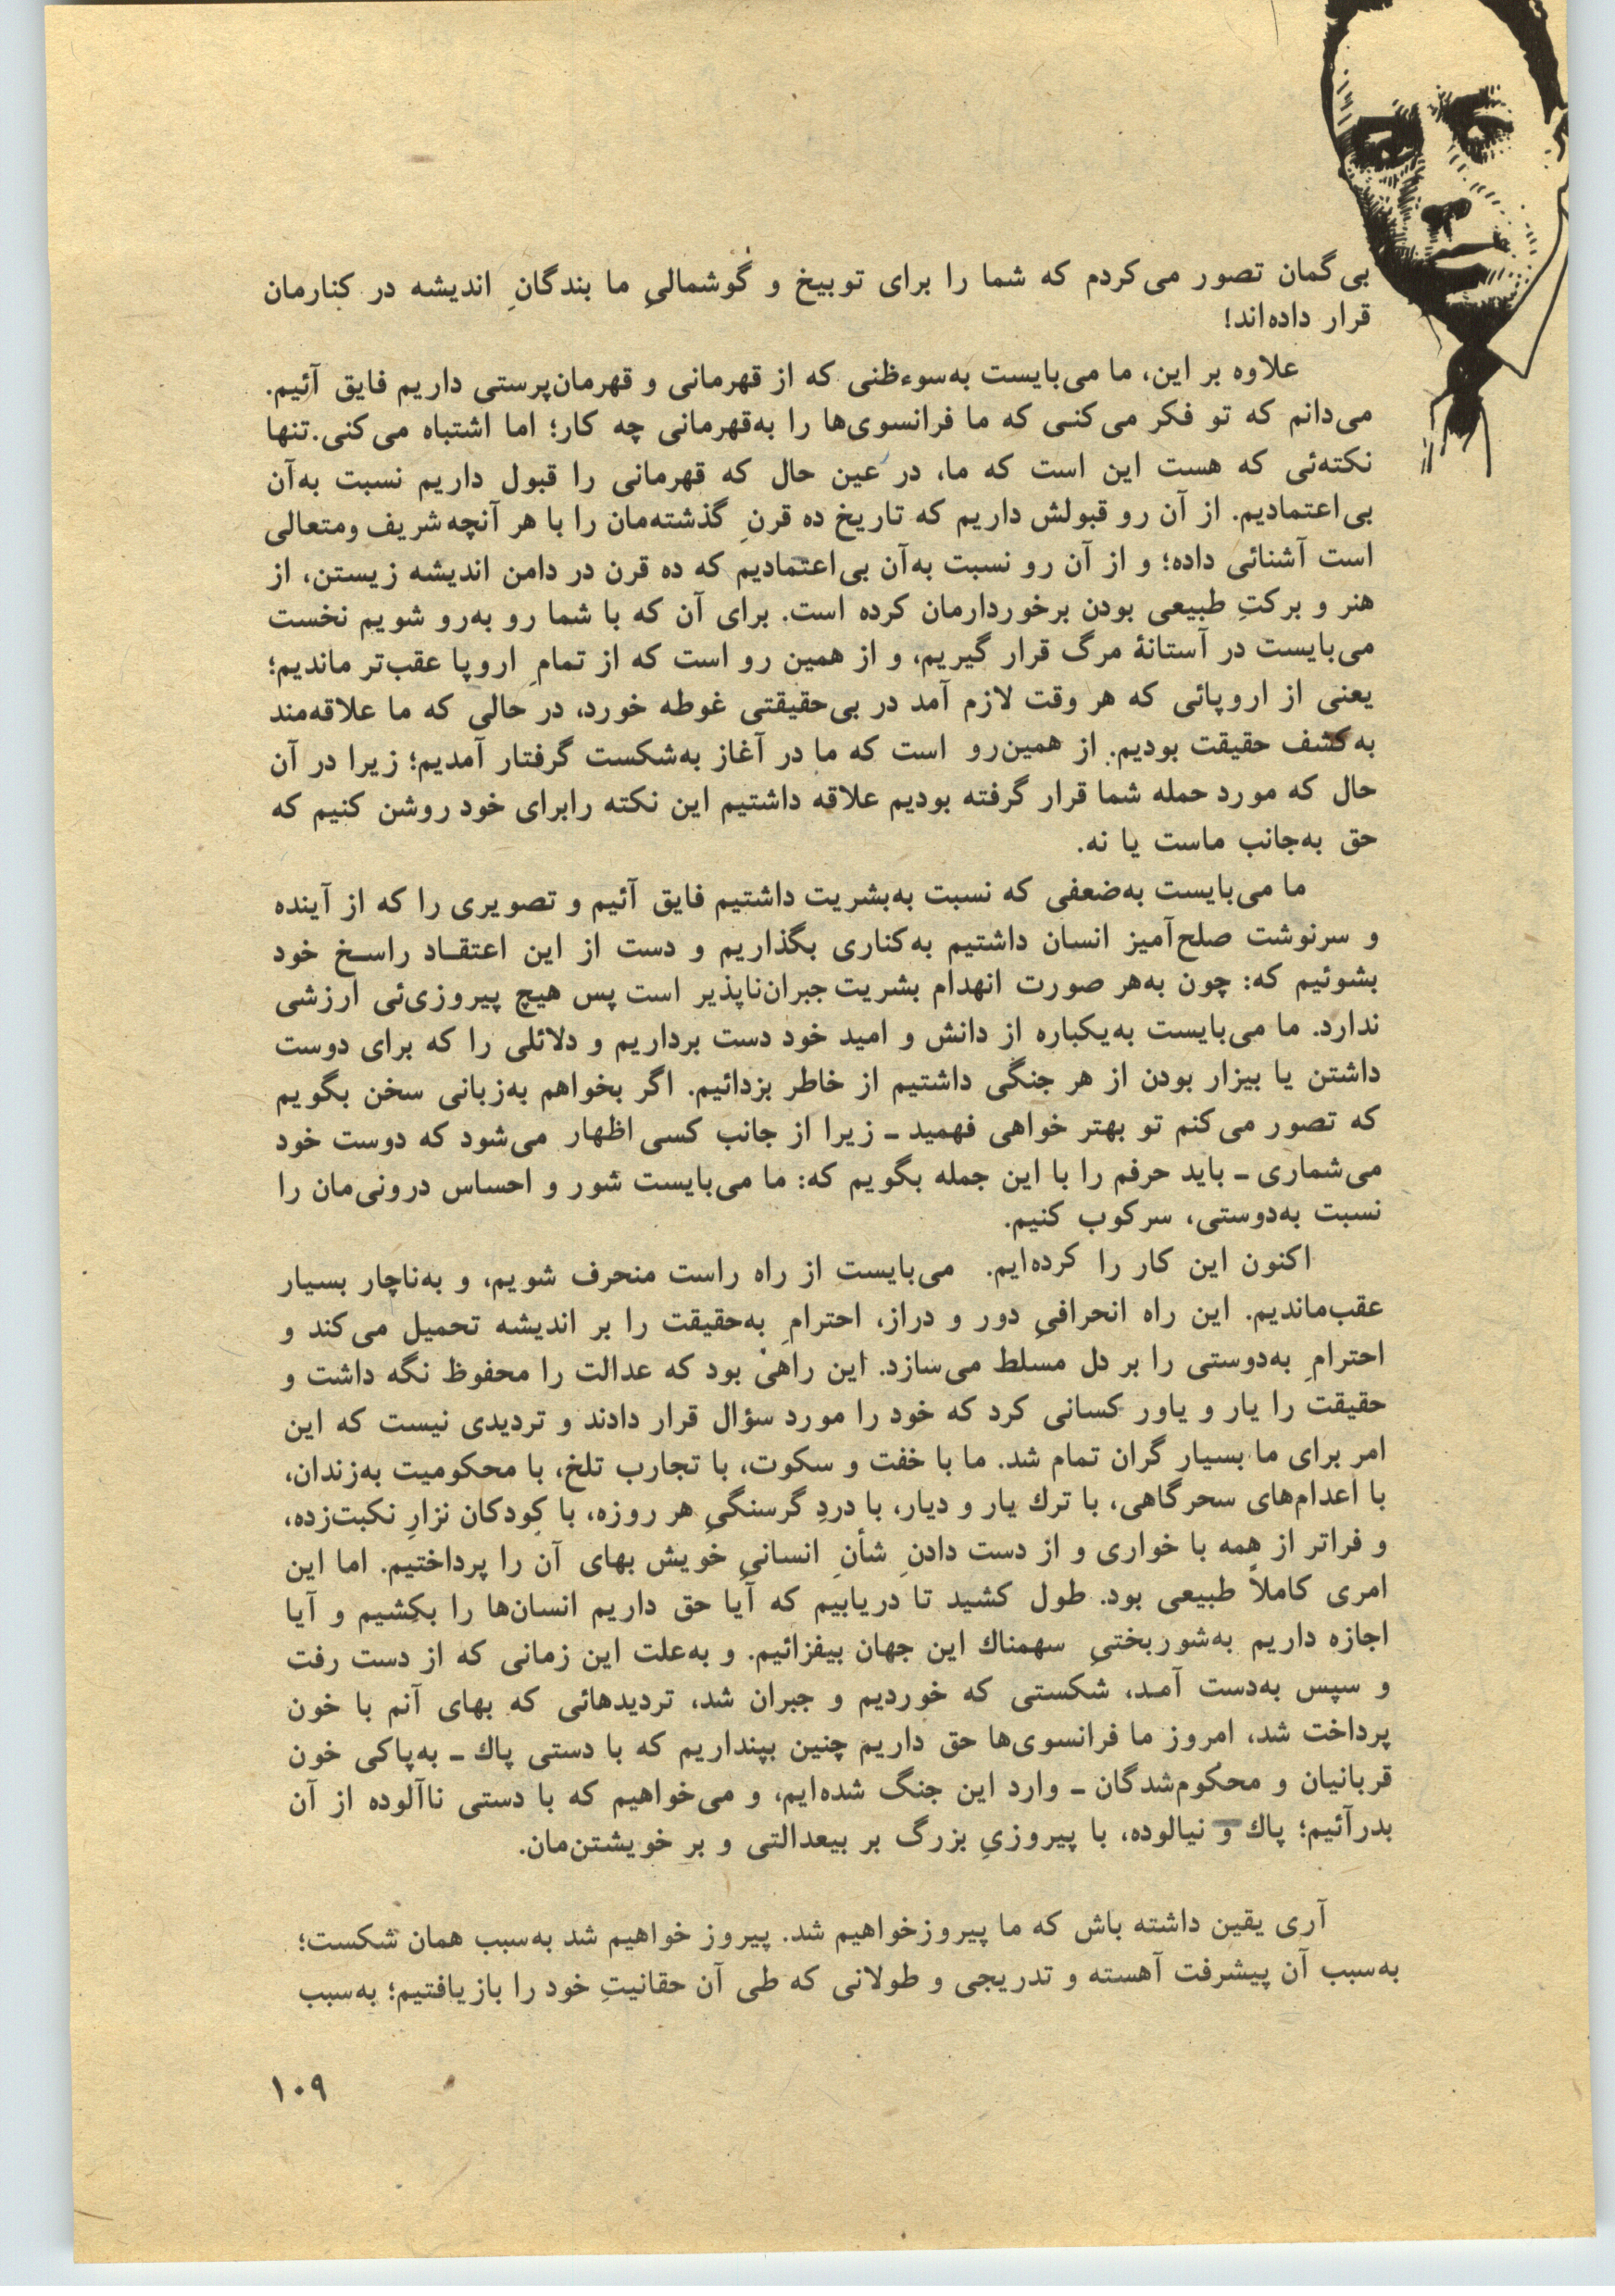 بی‌گمان تصور می‌کردم که شما را برای توبیخ و گوشمالیِ ما بندگانِ اندیشه در کنارمان
قرار داده‌اند!
علاوه بر این، ما می‌بایست به‌سوءظنی که از قهرمانی و قهرمان‌پرستی داریم فایق آئیم.
می‌دانم که تو فکر می‌کنی که ما فرانسوی‌ها را به‌قهرمانی چه کار؛ اما اشتباه می‌کنی. تنها
نکته‌ئی که هست این است که ما، در عین حال که قهرمانی را قبول داریم نسبت به‌آن
بی‌اعتمادیم. از آن رو قبولش داریم که تاریخ ده قرنِ گذشته‌مان را با هر آنچه شریف ومتعالی
است آشنائی داده؛ و از آن رو نسبت به‌آن بی‌اعتمادیم که ده قرن در دامن اندیشه زیستن، از
هنر و برکتِ طبیعی بودن برخوردارمان کرده است. برای آن که با شما رو به‌رو شویم نخست
می‌بایست در آستانهٔ مرگ قرار گیریم، و از همین رو است که از تمامِ اروپا عقب‌تر ماندیم؛
یعنی از اروپائی که هر وقت لازم آمد در بی‌حقیقتی غوطه خورد، در حالی که ما علاقه‌مند
به‌کشف حقیقت بودیم. از همین‌رو است که ما در آغاز به‌شکست گرفتار آمدیم؛ زیرا در آن
حال که مورد حمله شما قرار گرفته بودیم علاقه داشتیم این نکته رابرای خود روشن کنیم که
حق به‌جانب ماست یا نه.
ما می‌بایست به‌ضعفی که نسبت به‌بشریت داشتیم فایق آئیم و تصویری را که از آینده
و سرنوشت صلح‌آمیز انسان داشتیم به‌کناری بگذاریم و دست از این اعتقـاد راسـخ خود
بشوئیم که: چون به‌هر صورت انهدام بشریت جبران‌ناپذیر است پس هیچ پیروزی‌ئی ارزشی
ندارد. ما می‌بایست به‌یکباره از دانش و امید خود دست برداریم و دلائلی را که برای دوست
داشتن یا بیزار بودن از هر جنگی داشتیم از خاطر بزدائیم. اگر بخواهم به‌زبانی سخن بگویم
که تصور می‌کنم تو بهتر خواهی فهمید ـ زیرا از جانب کسی اظهار می‌شود که دوست خود
می‌شماری ـ باید حرفم را با این جمله بگویم که: ما می‌بایست شور و احساس درونی‌مان را
نسبت به‌دوستی، سرکوب کنیم.
اکنون این کار را کرده‌ایم. می‌بایست از راه راست منحرف شویم، و به‌ناچار بسیار
عقب‌ماندیم. این راه انحرافیِ دور و دراز، احترامِ به‌حقیقت را بر اندیشه تحمیل می‌کند و
احترامِ به‌دوستی را بر دل مسلط می‌سازد. این راهیْ بود که عدالت را محفوظ نگه داشت و
حقیقت را یار و یاور کسانی کرد که خود را مورد سؤال قرار دادند و تردیدی نیست که این
امر برای ما بسیار گران تمام شد. ما با خفت و سکوت، با تجارب تلخ، با محکومیت به‌زندان،
با اعدام‌های سحرگاهی، با ترك یار و دیار، با دردِ گرسنگیِ هر روزه، با کودکان نزارِ نکبت‌زده،
و فراتر از همه با خواری و از دست دادنِ شأنِ انسانیِ خویش بهای آن را پرداختیم. اما این
امری کاملاً طبیعی بود. طول کشید تا دریابیم که آیا حق داریم انسان‌ها را بکشیم و آیا
اجازه داریم به‌شوربختیِ سهمناك این جهان بیفزائیم. و به‌علت این زمانی که از دست رفت
و سپس به‌دست آمـد، شکستی که خوردیم و جبران شد، تردیدهائی که بهای آنم با خون
پرداخت شد، امروز ما فرانسوی‌ها حق داریم چنین بپنداریم که با دستی پاك ـ به‌پاکی خون
قربانیان و محکوم‌شدگان ـ وارد این جنگ شده‌ایم، و می‌خواهیم که با دستی ناآلوده از آن
بدرآئیم؛ پاك و نیالوده، با پیروزیِ بزرگ بر بیعدالتی و بر خویشتن‌مان.
آری یقین داشته باش که ما پیروزخواهیم شد. پیروز خواهیم شد به‌سبب همان شکست؛
به‌سبب آن پیشرفت آهسته و تدریجی و طولانی که طی آن حقانیتِ خود را بازیافتیم؛ به‌سبب
۱۰۹